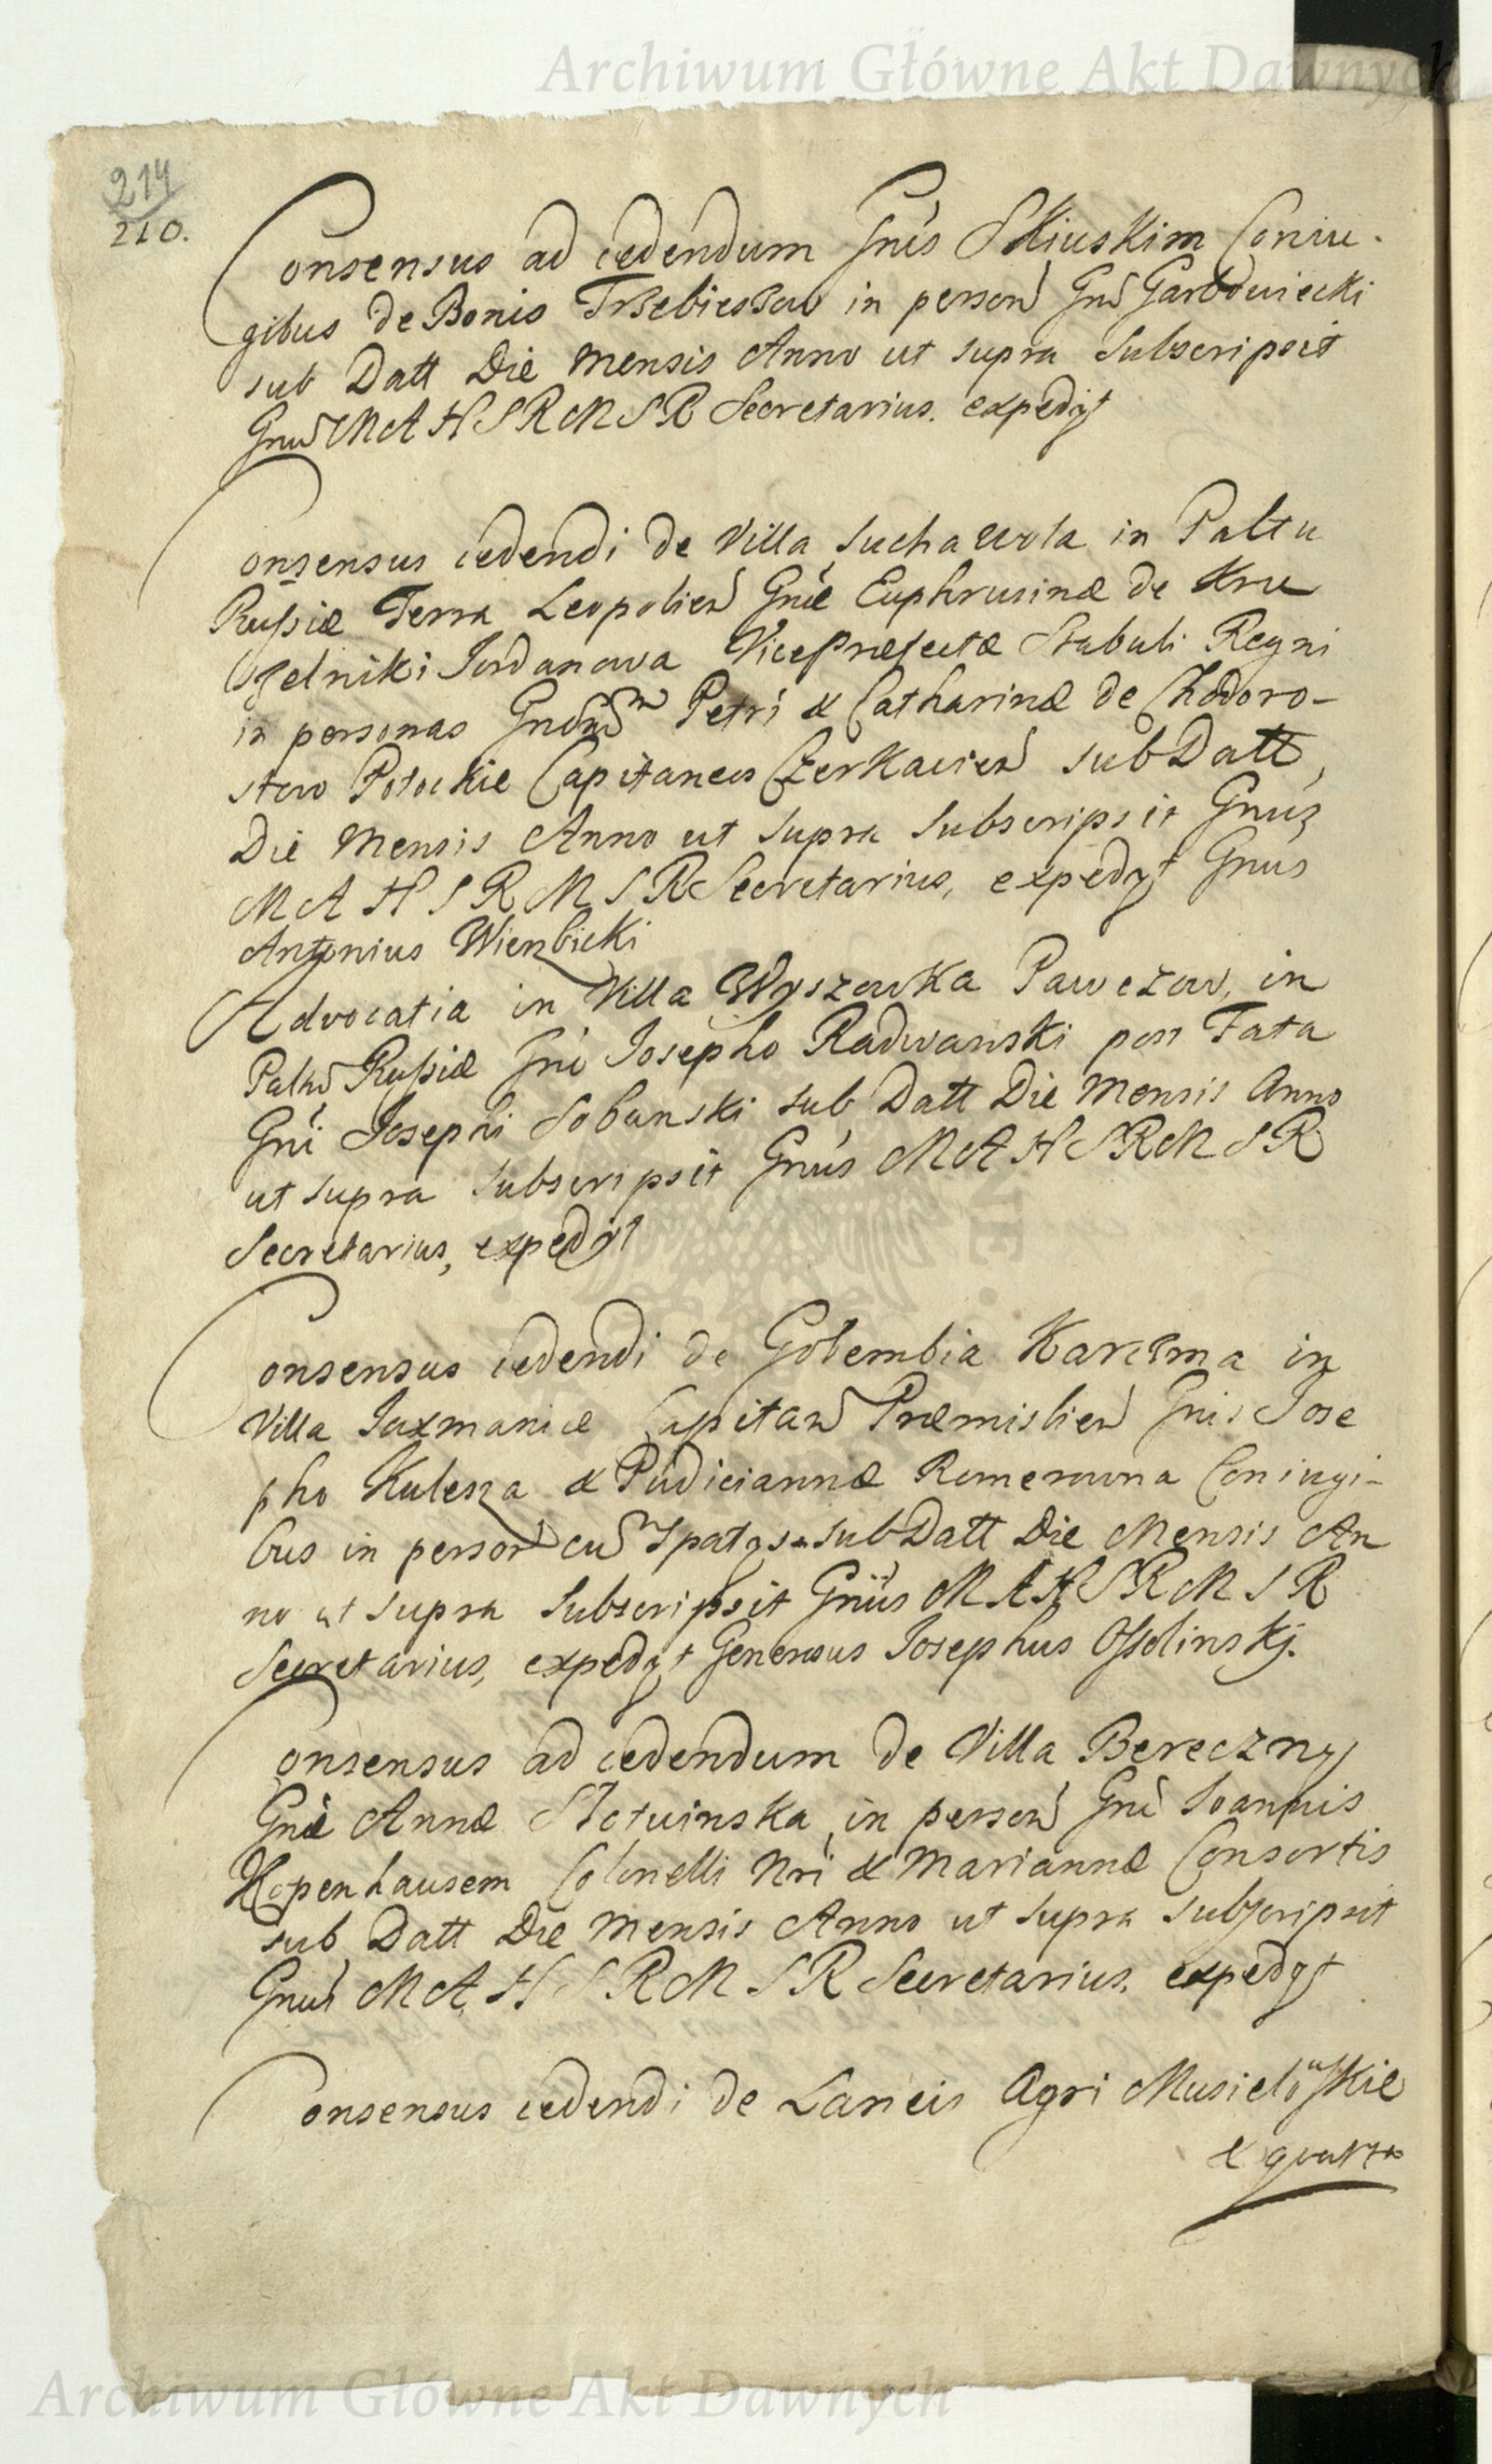 Archiwum Główne Akt Dawnych
214
210.
Consensus ad cedendum Gnis Skiuskim Coniu-
gibus de Bonis Trzebieszow in person Gni Garbowiecki
sub Datt Die Mensis Anno ut supra Subscripsit
Gnus M A H S R M S R Secretarius. expedyt
Consensus cedendi de Villa Sucha wola in Paltu
Russiæ Terra Leopolien Gnæ Euphrusinæ de Kru
szelniki Jordanowa Vice Præfectæ Stabuli Regni
in personas Gnorum Petri & Catharinæ de Chodoro-
staw Potockie Capitaneos Czerkacien sub Datt,
Die Mensis Anno ut supra Subscripsit Gnus
M A H S R M S R Secretarius, expedyt Gnus
Antonius Wierzbicki
Advocatia in Villa Wyszowka Pawezow, in
Paltu Russiæ Gni Josepho Radwanski post Fata
Gni Josephi Sobanski sub Datt Die Mensis Anno
ut supra Subscripsit Gnus M A H S R M S R
Secretarius, expedyt
Consensus cedendi de Golembia Karczma in
Villa Jaxmanicæ Capitan Præmislien Gnis Jose
pho Kulesza & Pudiciannæ Romerowna Coniugi-
bus in person sub Datt Die Mensis An
no ut supra Subscripsit Gnus M A H S R M S R
Secretarius, expedyt Generosus Josephus Ossolinskj.
Consensus ad cedendum de Villa Bereczny
Gnæ Annæ Slotwinska, in person Gni Joannis
Kopenhausem Colonelli Nri & Mariannæ Consortis
sub Datt Die Mensis Anno ut supra subscripsit
Gnus M A H S R M S R Secretarius. expedyt
Consensus cedendi de Laneis Agri Musielowskie
Archiwum Główne Akt Dawnych